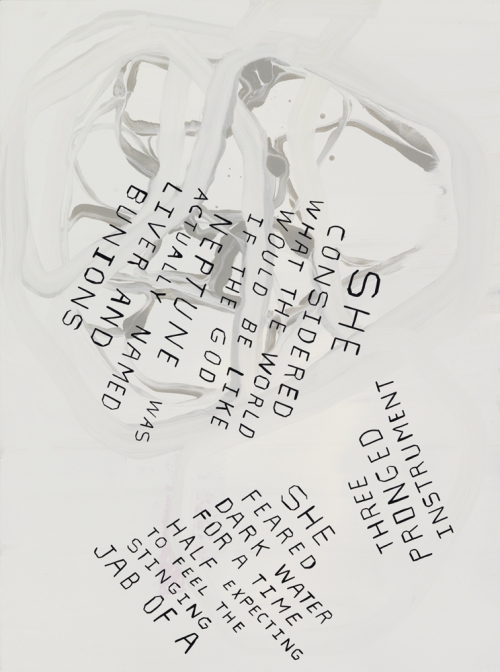 SHE
CONSIDERED
WHAT THE WORLD
WOULD BE LIKE
IF THE GOD
NEPTUNE WAS
ACTUALLY NAMED
LIVER AND
BUNIONS
SHE
FEARED
DARK WATER
FOR A TIME
HALF EXPECTING
TO FEEL THE
STINGING
JAB OF A
THREE
PRONGED
INSTRUMENT